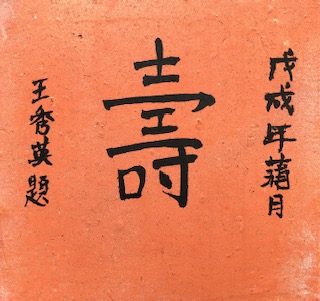 戊戌年蒲月
壽
王秀英題